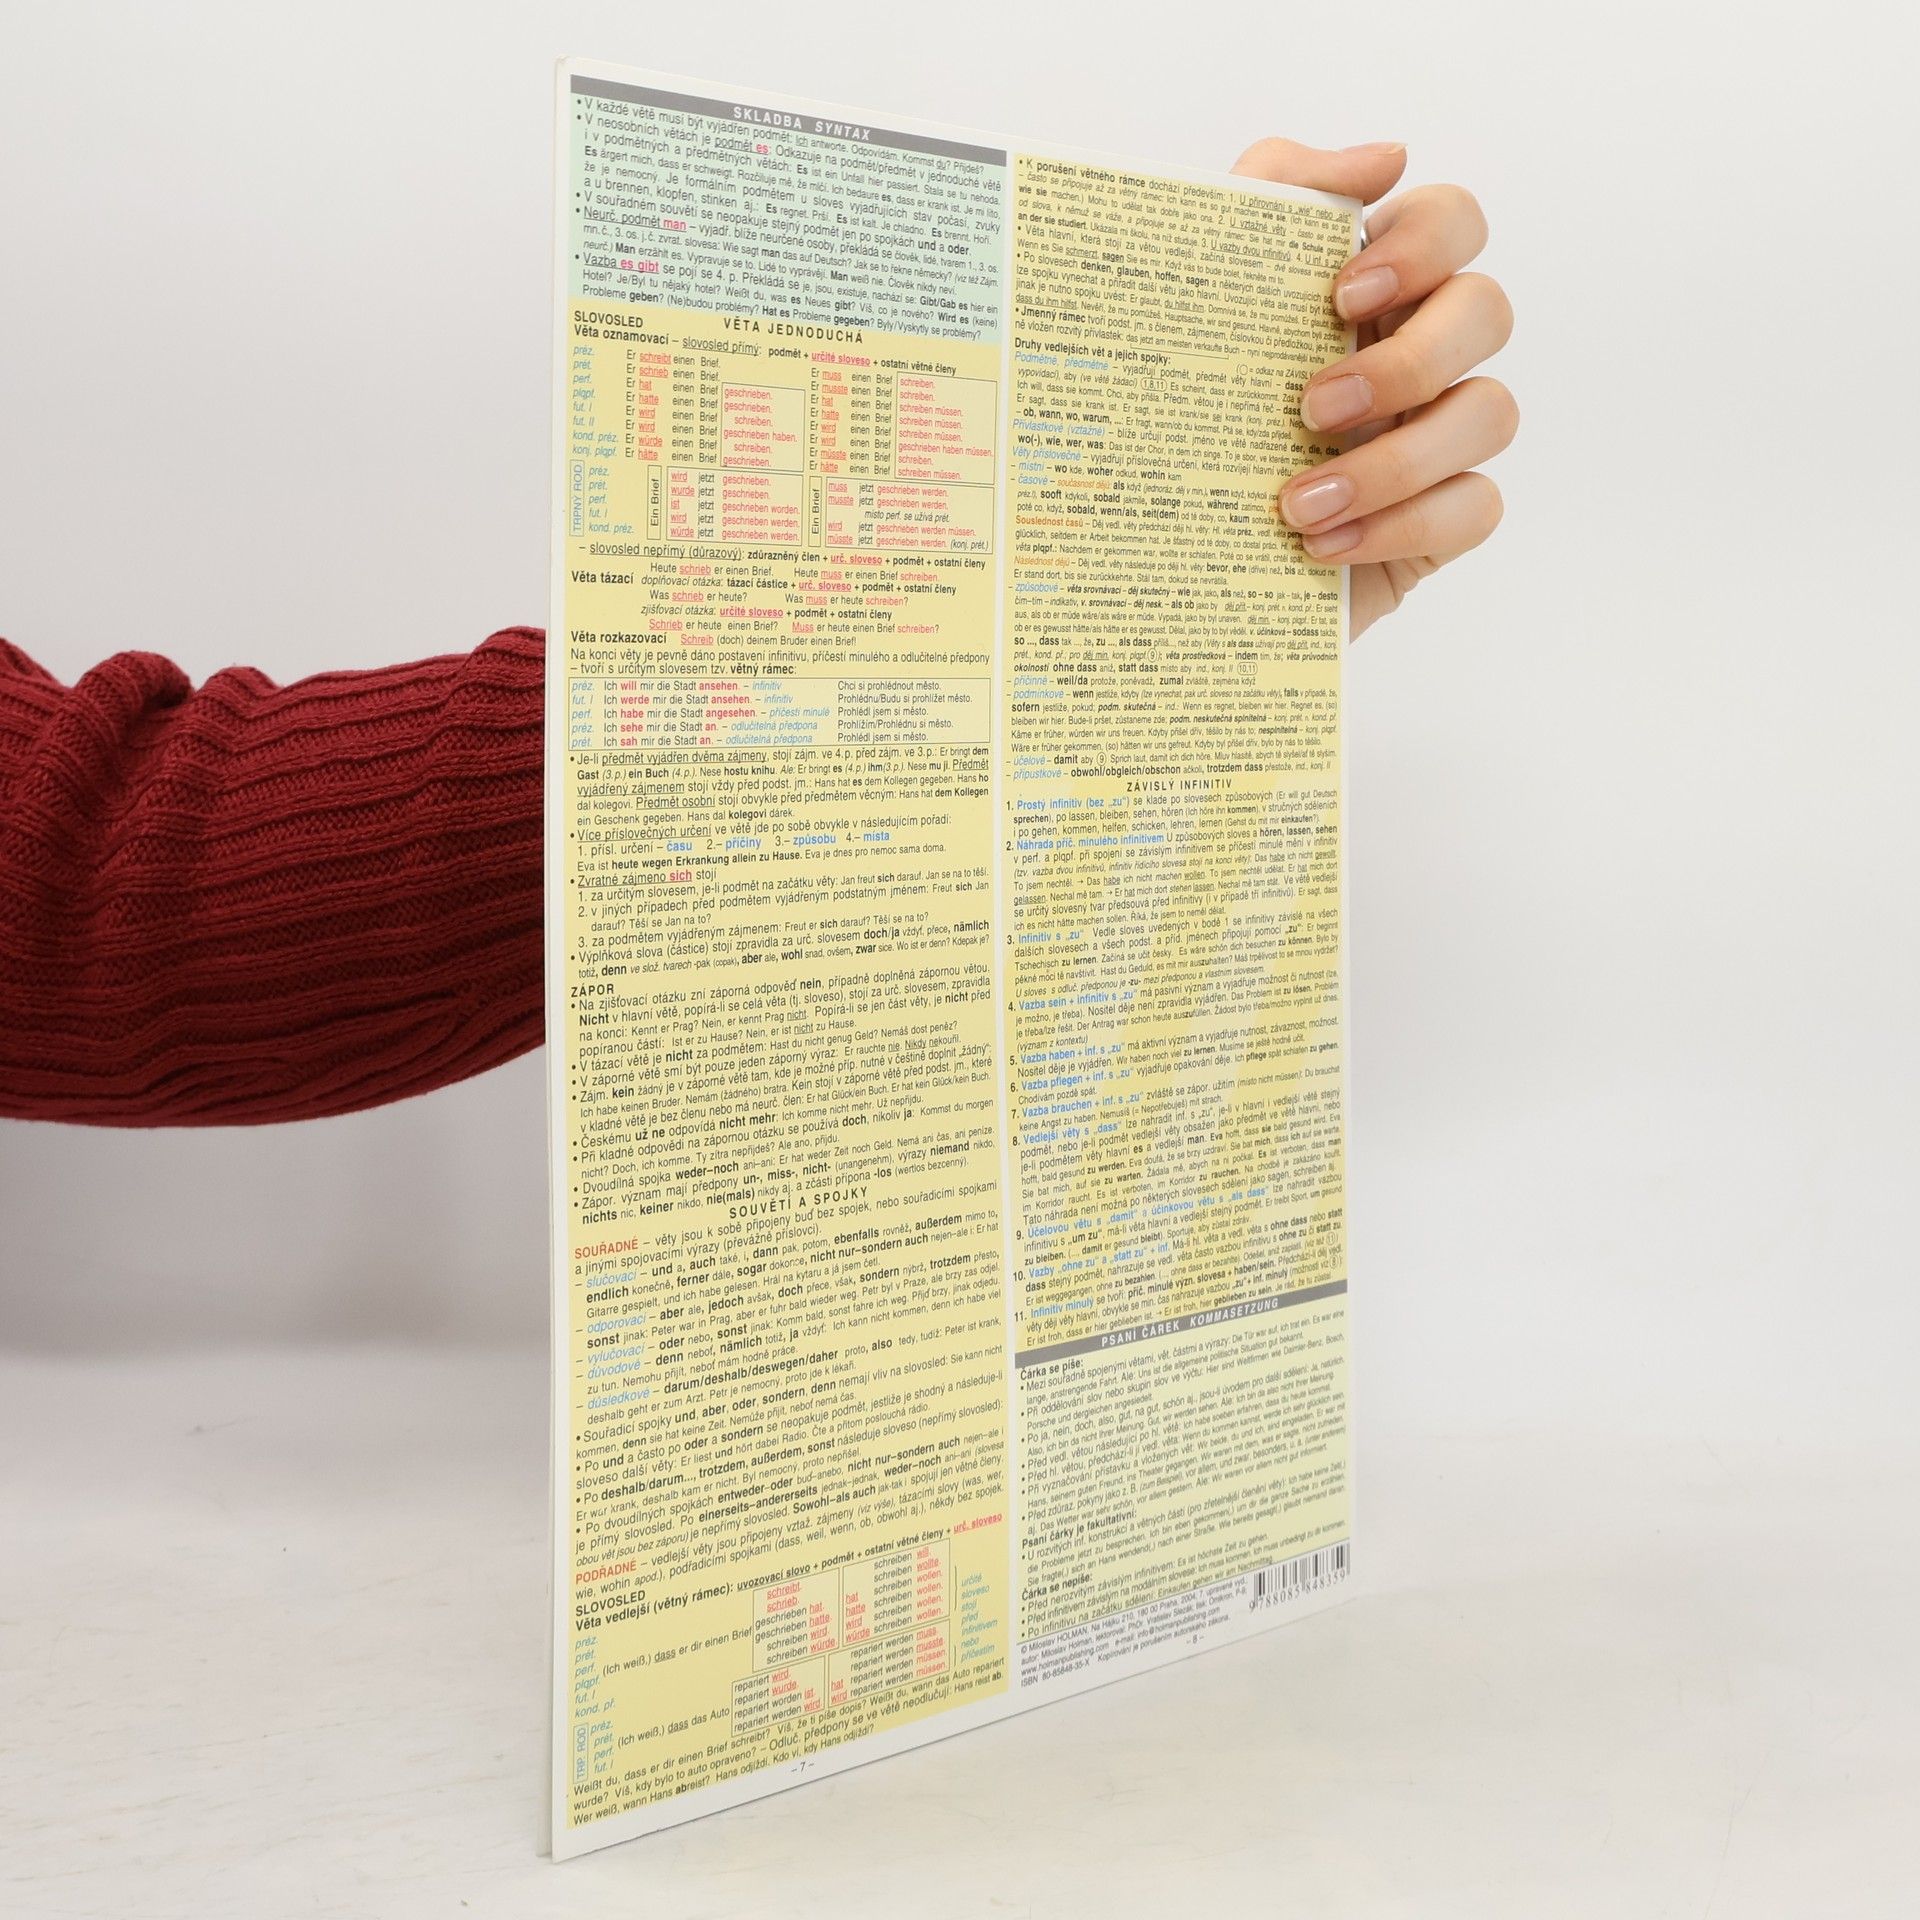 SKLADBA SYNTAX
• V každé větě musí být vyjádřen podmět: Ich antworte. Odpovídám. Kommst du? Přijdeš?
• V neosobních větách je podmět es: Odkazuje na podmět/předmět v jednoduché větě
i v podmětných a předmětných větách: Es ist ein Unfall hier passiert. Stala se tu nehoda.
Es ärgert mich, dass er schweigt. Rozčiluje mě, že mlčí. Ich bedaure es, dass er krank ist. Je mi líto,
že je nemocný. Je formálním podmětem u sloves vyjadřujících stav počasí, zvuky
a u brennen, klopfen, stinken aj.: Es regnet. Prší. Es ist kalt. Je chladno. Es brennt. Hoří.
• V souřadném souvětí se neopakuje stejný podmět jen po spojkách und a oder.
• Neurč. podmět man – vyjadř. blíže neurčené osoby, překládá se člověk, lidé, tvarem 1., 3. os.
mn.č., 3. os. j.č. zvrat. slovesa: Wie sagt man das auf Deutsch? Jak se to řekne německy? (viz též Zájm.
neurč.) Man erzählt es. Vypravuje se to. Lidé to vyprávějí. Man weiß nie. Člověk nikdy neví.
• Vazba es gibt se pojí se 4. p. Překládá se je, jsou, existuje, nachází se: Gibt/Gab es hier ein
Hotel? Je/Byl tu nějaký hotel? Weißt du, was es Neues gibt? Víš, co je nového? Wird es (keine)
Probleme geben? (Ne)budou problémy? Hat es Probleme gegeben? Byly/Vyskytly se problémy?
SLOVOSLED VĚTA JEDNODUCHÁ
Věta oznamovací – slovosled přímý: podmět + určité sloveso + ostatní větné členy
préz. Er schreibt einen Brief. Er muss einen Brief schreiben.
prét. Er schrieb einen Brief. Er musste einen Brief schreiben.
perf. Er hat einen Brief geschrieben. Er hat einen Brief schreiben müssen.
plqpf. Er hatte einen Brief geschrieben. Er hatte einen Brief schreiben müssen.
fut. I Er wird einen Brief schreiben. Er wird einen Brief schreiben müssen.
fut. II Er wird einen Brief geschrieben haben. Er wird einen Brief geschrieben haben müssen.
kond. préz. Er würde einen Brief schreiben. Er müsste einen Brief schreiben.
konj. plqpf. Er hätte einen Brief geschrieben. Er hätte einen Brief schreiben müssen.
TRPNÝ ROD
préz. Ein Brief wird jetzt geschrieben. Ein Brief muss jetzt geschrieben werden.
prét. wurde jetzt geschrieben. musste jetzt geschrieben werden.
perf. ist jetzt geschrieben worden. místo perf. se užívá prét.
fut. I wird jetzt geschrieben werden. wird jetzt geschrieben werden müssen.
kond. préz. würde jetzt geschrieben werden. müsste jetzt geschrieben werden. (konj. prét.)
– slovosled nepřímý (důrazový): zdůrazněný člen + urč. sloveso + podmět + ostatní členy
Heute schrieb er einen Brief. Heute muss er einen Brief schreiben.
Věta tázací doplňovací otázka: tázací částice + urč. sloveso + podmět + ostatní členy
Was schrieb er heute? Was muss er heute schreiben?
zjišťovací otázka: určité sloveso + podmět + ostatní členy
Schrieb er heute einen Brief? Muss er heute einen Brief schreiben?
Věta rozkazovací Schreib (doch) deinem Bruder einen Brief!
Na konci věty je pevně dáno postavení infinitivu, příčestí minulého a odlučitelné předpony
– tvoří s určitým slovesem tzv. větný rámec:
préz. Ich will mir die Stadt ansehen. – infinitiv Chci si prohlédnout město.
fut. I Ich werde mir die Stadt ansehen. – infinitiv Prohlédnu/Budu si prohlížet město.
perf. Ich habe mir die Stadt angesehen. – příčestí minulé Prohlédl jsem si město.
préz. Ich sehe mir die Stadt an. – odlučitelná předpona Prohlížím/Prohlédnu si město.
prét. Ich sah mir die Stadt an. – odlučitelná předpona Prohlédl jsem si město.
• Je-li předmět vyjádřen dvěma zájmeny, stojí zájm. ve 4.p. před zájm. ve 3.p.: Er bringt dem
Gast (3.p.) ein Buch (4.p.). Nese hostu knihu. Ale: Er bringt es (4.p.) ihm (3.p.). Nese mu ji. Předmět
vyjádřený zájmenem stojí vždy před podst. jm.: Hans hat es dem Kollegen gegeben. Hans ho
dal kolegovi. Předmět osobní stojí obvykle před předmětem věcným: Hans hat dem Kollegen
ein Geschenk gegeben. Hans dal kolegovi dárek.
• Více příslovečných určení ve větě jde po sobě obvykle v následujícím pořadí:
1. přísl. určení – času 2.– příčiny 3.– způsobu 4.– místa
Eva ist heute wegen Erkrankung allein zu Hause. Eva je dnes pro nemoc sama doma.
• Zvratné zájmeno sich stojí
1. za určitým slovesem, je-li podmět na začátku věty: Jan freut sich darauf. Jan se na to těší.
2. v jiných případech před podmětem vyjádřeným podstatným jménem: Freut sich Jan
darauf? Těší se Jan na to?
3. za podmětem vyjádřeným zájmenem: Freut er sich darauf? Těší se na to?
• Výplňková slova (částice) stojí zpravidla za urč. slovesem doch/ja vždyť, přece, nämlich
totiž, denn ve slož. tvarech -pak (copak), aber ale, wohl snad, ovšem, zwar sice. Wo ist er denn? Kdepak je?
ZÁPOR
• Na zjišťovací otázku zní záporná odpověď nein, případně doplněná zápornou větou.
Nicht v hlavní větě, popírá-li se celá věta (tj. sloveso), stojí za urč. slovesem, zpravidla
na konci: Kennt er Prag? Nein, er kennt Prag nicht. Popírá-li se jen část věty, je nicht před
popíranou částí: Ist er zu Hause? Nein, er ist nicht zu Hause.
• V tázací větě je nicht za podmětem: Hast du nicht genug Geld? Nemáš dost peněz?
• V záporné větě smí být pouze jeden záporný výraz: Er rauchte nie. Nikdy nekouřil.
• Zájm. kein žádný je v záporné větě tam, kde je možné příp. nutné v češtině doplnit „žádný“:
Ich habe keinen Bruder. Nemám (žádného) bratra. Kein stojí v záporné větě před podst. jm., které
v kladné větě je bez členu nebo má neurč. člen: Er hat Glück/ein Buch. Er hat kein Glück/kein Buch.
• Českému už ne odpovídá nicht mehr: Ich komme nicht mehr. Už nepřijdu.
• Při kladné odpovědi na zápornou otázku se používá doch, nikoliv ja: Kommst du morgen
nicht? Doch, ich komme. Ty zítra nepřijdeš? Ale ano, přijdu.
• Dvoudílná spojka weder–noch ani–ani: Er hat weder Zeit noch Geld. Nemá ani čas, ani peníze.
• Zápor. význam mají předpony un-, miss-, nicht- (unangenehm), výrazy niemand nikdo,
nichts nic, keiner nikdo, nie(mals) nikdy aj. a zčásti přípona -los (wertlos bezcenný).
SOUVĚTÍ A SPOJKY
SOUŘADNÉ – věty jsou k sobě připojeny buď bez spojek, nebo souřadicími spojkami
a jinými spojovacími výrazy (převážně příslovci).
– slučovací – und a, auch také, i, dann pak, potom, ebenfalls rovněž, außerdem mimo to,
endlich konečně, ferner dále, sogar dokonce, nicht nur–sondern auch nejen–ale i: Er hat
Gitarre gespielt, und ich habe gelesen. Hrál na kytaru a já jsem četl.
– odporovací – aber ale, jedoch avšak, doch přece, však, sondern nýbrž, trotzdem přesto,
sonst jinak: Peter war in Prag, aber er fuhr bald wieder weg. Petr byl v Praze, ale brzy zas odjel.
– vylučovací – oder nebo, sonst jinak: Komm bald, sonst fahre ich weg. Přijď brzy, jinak odjedu.
– důvodové – denn neboť, nämlich totiž, ja vždyť: Ich kann nicht kommen, denn ich habe viel
zu tun. Nemohu přijít, neboť mám hodně práce.
– důsledkové – darum/deshalb/deswegen/daher proto, also tedy, tudíž: Peter ist krank,
deshalb geht er zum Arzt. Petr je nemocný, proto jde k lékaři.
• Souřadicí spojky und, aber, oder, sondern, denn nemají vliv na slovosled: Sie kann nicht
kommen, denn sie hat keine Zeit. Nemůže přijít, neboť nemá čas.
• Po und a často po oder a sondern se neopakuje podmět, jestliže je shodný a následuje-li
sloveso další věty: Er liest und hört dabei Radio. Čte a přitom poslouchá rádio.
• Po deshalb/darum..., trotzdem, außerdem, sonst následuje sloveso (nepřímý slovosled):
Er war krank, deshalb kam er nicht. Byl nemocný, proto nepřišel.
• Po dvoudílných spojkách entweder–oder buď–anebo, nicht nur–sondern auch nejen–ale i
je přímý slovosled. Po einerseits–andererseits jednak–jednak, weder–noch ani–ani (slovesa
obou vět jsou bez záporu) je nepřímý slovosled. Sowohl–als auch jak-tak i spojují jen větné členy.
PODŘADNÉ – vedlejší věty jsou připojeny vztaž. zájmeny (viz výše), tázacími slovy (was, wer,
wie, wohin apod.), podřadicími spojkami (dass, weil, wenn, ob, obwohl aj.), někdy bez spojek.
SLOVOSLED
Věta vedlejší (větný rámec): uvozovací slovo + podmět + ostatní větné členy + urč. sloveso
préz. schreibt. schreiben will.
prét. schrieb. schreiben wollte.
perf. (Ich weiß,) dass er dir einen Brief geschrieben hat. hat schreiben wollen.
plqpf. geschrieben hatte. hatte schreiben wollen.
fut. I schreiben wird. wird schreiben wollen.
kond. př. schreiben würde. würde schreiben wollen.
určité sloveso stojí před infinitivem nebo příčestím
TRP. ROD
préz. repariert wird. repariert werden muss.
prét. (Ich weiß,) dass das Auto repariert wurde. repariert werden musste.
perf. repariert worden ist. hat repariert werden müssen.
fut. I repariert werden wird. wird repariert werden müssen.
Weißt du, dass er dir einen Brief schreibt? Víš, že ti píše dopis? Weißt du, wann das Auto repariert
wurde? Víš, kdy bylo to auto opraveno? – Odluč. předpony se ve větě neodlučují: Hans reist ab.
Wer weiß, wann Hans abreist? Hans odjíždí. Kdo ví, kdy Hans odjíždí?
– 7 –
• K porušení větného rámce dochází především: 1. U přirovnání s „wie“ nebo „als“
– často se připojuje až za větný rámec: Ich kann es so gut machen wie sie (Ich kann es so gut
wie sie machen.) Mohu to udělat tak dobře jako ona. 2. U vztažné věty – často se odtrhuje
od slova, k němuž se váže, a připojuje se až za větný rámec: Sie hat mir die Schule gezeigt,
an der sie studiert. Ukázala mi školu, na níž studuje. 3. U vazby dvou infinitivů. 4. U inf. s „zu“
• Věta hlavní, která stojí za větou vedlejší, začíná slovesem – dvě slovesa vedle
Wenn es Sie schmerzt, sagen Sie es mir. Když vás to bude bolet, řekněte mi to.
• Po slovesech denken, glauben, hoffen, sagen a některých dalších uvozujících
lze spojku vynechat a přiřadit další větu jako hlavní. Uvozující věta ale musí být
jinak je nutno spojku uvést: Er glaubt, du hilfst ihm. Domnívá se, že mu pomůžeš. Er glaubt nicht,
dass du ihm hilfst. Nevěří, že mu pomůžeš. Hauptsache, wir sind gesund. Hlavně, abychom byli zdrávi.
• Jmenný rámec tvoří podst. jm. s členem, zájmenem, číslovkou či předložkou, je-li mezi
ně vložen rozvitý přívlastek: das jetzt am meisten verkaufte Buch – nyní nejprodávanější kniha
Druhy vedlejších vět a jejich spojky: (◯ = odkaz na ZÁVISLÝ
Podmětné, předmětné – vyjadřují podmět, předmět věty hlavní – dass
vypovídací), aby (ve větě žádací) (1,8,11) Es scheint, dass er zurückkommt. Zdá s
Ich will, dass sie kommt. Chci, aby přišla. Předm. větou je i nepřímá řeč – dass
Er sagt, dass sie krank ist. Er sagt, sie ist krank/sie sei krank (konj. préz.).
– ob, wann, wo, warum, ...: Er fragt, wann/ob du kommst. Ptá se, kdy/zda přijdeš.
Přívlastkové (vztažné) – blíže určují podst. jméno ve větě nadřazené der, die, das,
wo(-), wie, wer, was: Das ist der Chor, in dem ich singe. To je sbor, ve kterém zpívám.
Věty příslovečné – vyjadřují příslovečná určení, která rozvíjejí hlavní větu:
– místní – wo kde, woher odkud, wohin kam
– časové – současnost dějů: als když (jednoráz. děj v min.), wenn když, kdykoli
préz.!), sooft kdykoli, sobald jakmile, solange pokud, während zatímco,
poté co, když, sobald, wenn/als, seit(dem) od té doby, co, kaum sotva
Souslednost časů – Děj vedl. věty předchází ději hl. věty: Hl. věta préz., vedl. věta perf.
glücklich, seitdem er Arbeit bekommen hat. Je šťastný od té doby, co dostal práci. Hl. věta
věta plqpf.: Nachdem er gekommen war, wollte er schlafen. Poté co se vrátil, chtěl spát.
Následnost dějů – Děj vedl. věty následuje po ději hl. věty: bevor, ehe (dříve) než, bis až, dokud ne.
Er stand dort, bis sie zurückkehrte. Stál tam, dokud se nevrátila.
– způsobové – věta srovnávací – děj skutečný – wie jak, jako, als než, so – so jak – tak, je – desto
čím–tím – indikativ, v. srovnávací – děj nesk. – als ob jako by děj přít.– konj. prét. n. kond. př. Er sieht
aus, als ob er müde wäre/als wäre er müde. Vypadá, jako by byl unaven. děj min. – konj. plqpf. Er tat, als
ob er es gewusst hätte/als hätte er es gewusst. Dělal, jako by to byl věděl. v. účinková – sodass takže,
so ..., dass tak ..., že, zu ..., als dass příliš..., než aby (Věty s als dass užívají pro děj přít. ind., konj.
prét., kond. př., pro děj min. konj. plqpf. (9)); věta prostředková – indem tím, že; věta průvodních
okolností ohne dass aniž, statt dass místo aby ind., konj. II (10,11)
– příčinné – weil/da protože, poněvadž, zumal zvláště, zejména když
– podmínkové – wenn jestliže, kdyby (lze vynechat, pak urč. sloveso na začátku věty), falls v případě, že,
sofern jestliže, pokud; podm. skutečná – ind.: Wenn es regnet, bleiben wir hier. Regnet es, (so)
bleiben wir hier. Bude-li pršet, zůstaneme zde; podm. neskutečná splnitelná – konj. prét. n. kond. př.
Käme er früher, würden wir uns freuen. Kdyby přišel dřív, těšilo by nás to; nesplnitelná – konj. plqpf.
Wäre er früher gekommen, (so) hätten wir uns gefreut. Kdyby byl přišel dřív, bylo by nás to těšilo.
– účelové – damit aby (9) Sprich laut, damit ich dich höre. Mluv hlasitě, abych tě slyšel/ať tě slyším.
– přípustkové – obwohl/obgleich/obschon ačkoli, trotzdem dass přestože, ind., konj. II
ZÁVISLÝ INFINITIV
1. Prostý infinitiv (bez „zu“) se klade po slovesech způsobových (Er will gut Deutsch
sprechen), po lassen, bleiben, sehen, hören (Ich höre ihn kommen), v stručných sděleních
i po gehen, kommen, helfen, schicken, lehren, lernen (Gehst du mit mir einkaufen?).
2. Náhrada příč. minulého infinitivem U způsobových sloves a hören, lassen, sehen
v perf. a plqpf. při spojení se závislým infinitivem se příčestí minulé mění v infinitiv
(tzv. vazba dvou infinitivů, infinitiv řídicího slovesa stojí na konci věty): Das habe ich nicht gewollt.
To jsem nechtěl. → Das habe ich nicht machen wollen. To jsem nechtěl udělat. Er hat mich dort
gelassen. Nechal mě tam. → Er hat mich dort stehen lassen. Nechal mě tam stát. Ve větě vedlejší
se určitý slovesný tvar předsouvá před infinitiv (i v případě tří infinitivů). Er sagt, dass
ich es nicht hätte machen sollen. Říká, že jsem to neměl dělat.
3. Infinitiv s „zu“ Vedle sloves uvedených v bodě 1 se infinitivy závislé na všech
dalších slovesech a všech podst. a příd. jménech připojují pomocí „zu“: Er beginnt
Tschechisch zu lernen. Začíná se učit česky. Es wäre schön dich besuchen zu können. Bylo by
pěkné moci tě navštívit. Hast du Geduld, es mit mir auszuhalten? Máš trpělivost to se mnou vydržet?
U sloves s odluč. předponou je -zu- mezi předponou a vlastním slovesem.
4. Vazba sein + infinitiv s „zu“ má pasivní význam a vyjadřuje možnost či nutnost (lze,
je možno, je třeba). Nositel děje není zpravidla vyjádřen. Das Problem ist zu lösen. Problém
je třeba/lze řešit. Der Antrag war schon heute auszufüllen. Žádost bylo třeba/možno vyplnit už dnes.
(význam z kontextu)
5. Vazba haben + inf. s „zu“ má aktivní význam a vyjadřuje nutnost, závaznost, možnost.
Nositel děje je vyjádřen. Wir haben noch viel zu lernen. Musíme se ještě hodně učit.
6. Vazba pflegen + inf. s „zu“ vyjadřuje opakování děje. Ich pflege spät schlafen zu gehen.
Chodívám pozdě spát.
7. Vazba brauchen + inf. s „zu“ zvláště se zápor. užitím (místo nicht müssen): Du brauchst
keine Angst zu haben. Nemusíš (= Nepotřebuješ) mít strach.
8. Vedlejší věty s „dass“ lze nahradit inf. s „zu“, je-li v hlavní i vedlejší větě stejný
podmět, nebo je-li podmět vedlejší věty obsažen jako předmět ve větě hlavní, nebo
je-li podmětem věty hlavní es a vedlejší man. Eva hofft, dass sie bald gesund wird. Eva
hofft, bald gesund zu werden. Eva doufá, že se brzy uzdraví. Sie bat mich, dass ich auf sie warte.
Sie bat mich, auf sie zu warten. Žádala mě, abych na ni počkal. Es ist verboten, dass man
im Korridor raucht. Es ist verboten, im Korridor zu rauchen. Na chodbě je zakázáno kouřit.
Tato náhrada není možná po některých slovesech sdělení jako sagen, schreiben aj.
9. Účelovou větu s „damit“ a účinkovou větu s „als dass“ lze nahradit vazbou
infinitivu s „um zu“, má-li věta hlavní a vedlejší stejný podmět. Er treibt Sport, um gesund
zu bleiben. (..., damit er gesund bleibt). Sportuje, aby zůstal zdráv.
10. Vazby „ohne zu“ a „statt zu“ + inf. Má-li hl. věta a vedl. věta s ohne dass nebo statt
dass stejný podmět, nahrazuje se vedl. věta často vazbou infinitivu s ohne zu či statt zu.
Er ist weggegangen, ohne zu bezahlen. (..., ohne dass er bezahlte). Odešel, aniž zaplatil. (viz též (11))
11. Infinitiv minulý se tvoří: příč. minulé význ. slovesa + haben/sein. Předchází-li děj vedl.
věty ději věty hlavní, obvykle se min. čas nahrazuje vazbou „zu“+ inf. minulý (možnosti viz (8)):
Er ist froh, dass er hier geblieben ist. → Er ist froh, hier geblieben zu sein. Je rád, že tu zůstal.
PSANÍ ČÁREK KOMMASETZUNG
Čárka se píše:
• Mezi souřadně spojenými větami, vět. částmi a výrazy: Die Tür war auf, ich trat ein. Es war eine
lange, anstrengende Fahrt. Ale: Uns ist die allgemeine politische Situation gut bekannt.
• Při oddělování slov nebo skupin slov ve výčtu: Hier sind Weltfirmen wie Daimler-Benz, Bosch,
Porsche und dergleichen angesiedelt.
• Po ja, nein, doch, also, gut, na gut, schön aj., jsou-li úvodem pro další sdělení: Ja, natürlich.
Also, ich bin da nicht Ihrer Meinung. Gut, wir werden sehen. Ale: Ich bin da also nicht Ihrer Meinung.
• Před vedl. větou následující po hl. větě: Ich habe soeben erfahren, dass du heute kommst.
• Před hl. větou, předchází-li jí vedl. věta: Wenn du kommen kannst, werde ich sehr glücklich sein.
• Při vyznačování přístavku a vložených vět: Wir beide, du und ich, sind eingeladen. Er war mit
Hans, seinem guten Freund, ins Theater gegangen. Wir waren mit dem, was er sagte, nicht zufrieden.
• Před zdůraz. pokyny jako z. B. (zum Beispiel), vor allem, und zwar, besonders, u. a. (unter anderem)
aj. Das Wetter war sehr schön, vor allem gestern. Ale: Wir waren vor allem nicht gut informiert.
Psaní čárky je fakultativní:
• U rozvitých inf. konstrukcí a větných částí (pro zřetelnější členění věty): Ich habe keine Zeit(,)
die Probleme jetzt zu besprechen. Ich bin eben gekommen(,) um dir die ganze Sache zu erzählen.
Sie fragte(,) sich an Hans wendend(,) nach einer Straße. Wie bereits gesagt(,) glaubt niemand daran.
Čárka se nepíše:
• Před nerozvitým závislým infinitivem: Es ist höchste Zeit zu gehen.
• Před infinitivem závislým na modálním slovese: Ich muss kommen. Ich muss unbedingt zu dir kommen.
• Po infinitivu na začátku sdělení: Einkaufen gehen wir am Nachmittag.
© Miloslav HOLMAN, Na Hájku 210, 180 00 Praha, 2004; 7. upravené vyd.
autor: Miloslav Holman, lektoroval: PhDr. Vratislav Slezák; tisk: Omikron, P-8.
www.holmanpublishing.com e-mail: info@holmanpublishing.com
ISBN 80-85848-35-X Kopírování je porušením autorského zákona.
9 788085 848359
– 8 –